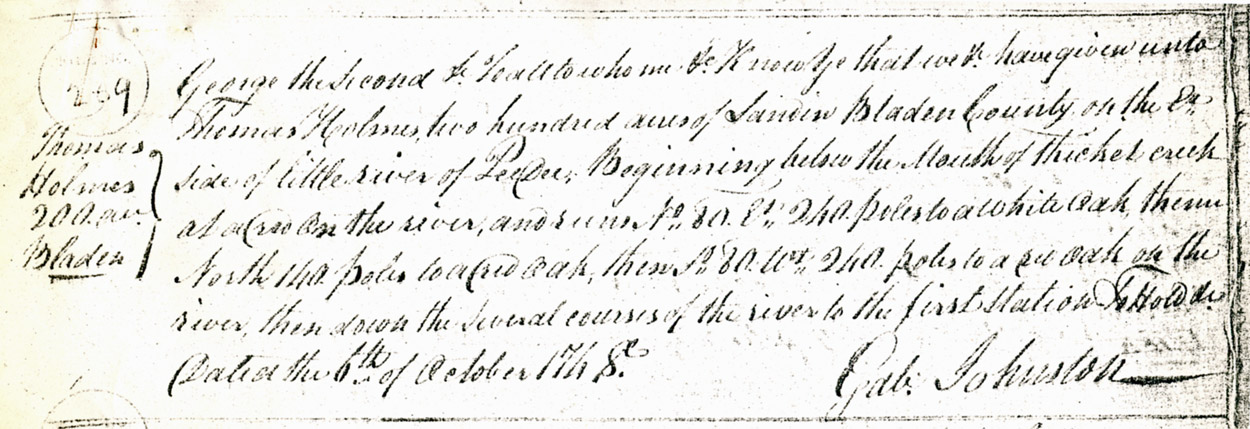 239
Thomas
Holmes
200. acr
Bladen
George the Second &c To all to whom &c Know Ye that we &c have given unto
Thomas Holmes, two hundred acres of Land in Bladen County on the Et
side of little river of PeeDee, Beginning below the Mouth of thicket creek
at a red Oak on the river, and runs No. 80. Et. 240. poles to a white Oak, then
North 140. poles to a red Oak, then So. 80. Wt. 240. poles to a red Oak on the
river, then down the several courses of the river to the first Station To Hold &c
Dated the 6th of October 1748.
Gab: Johnston